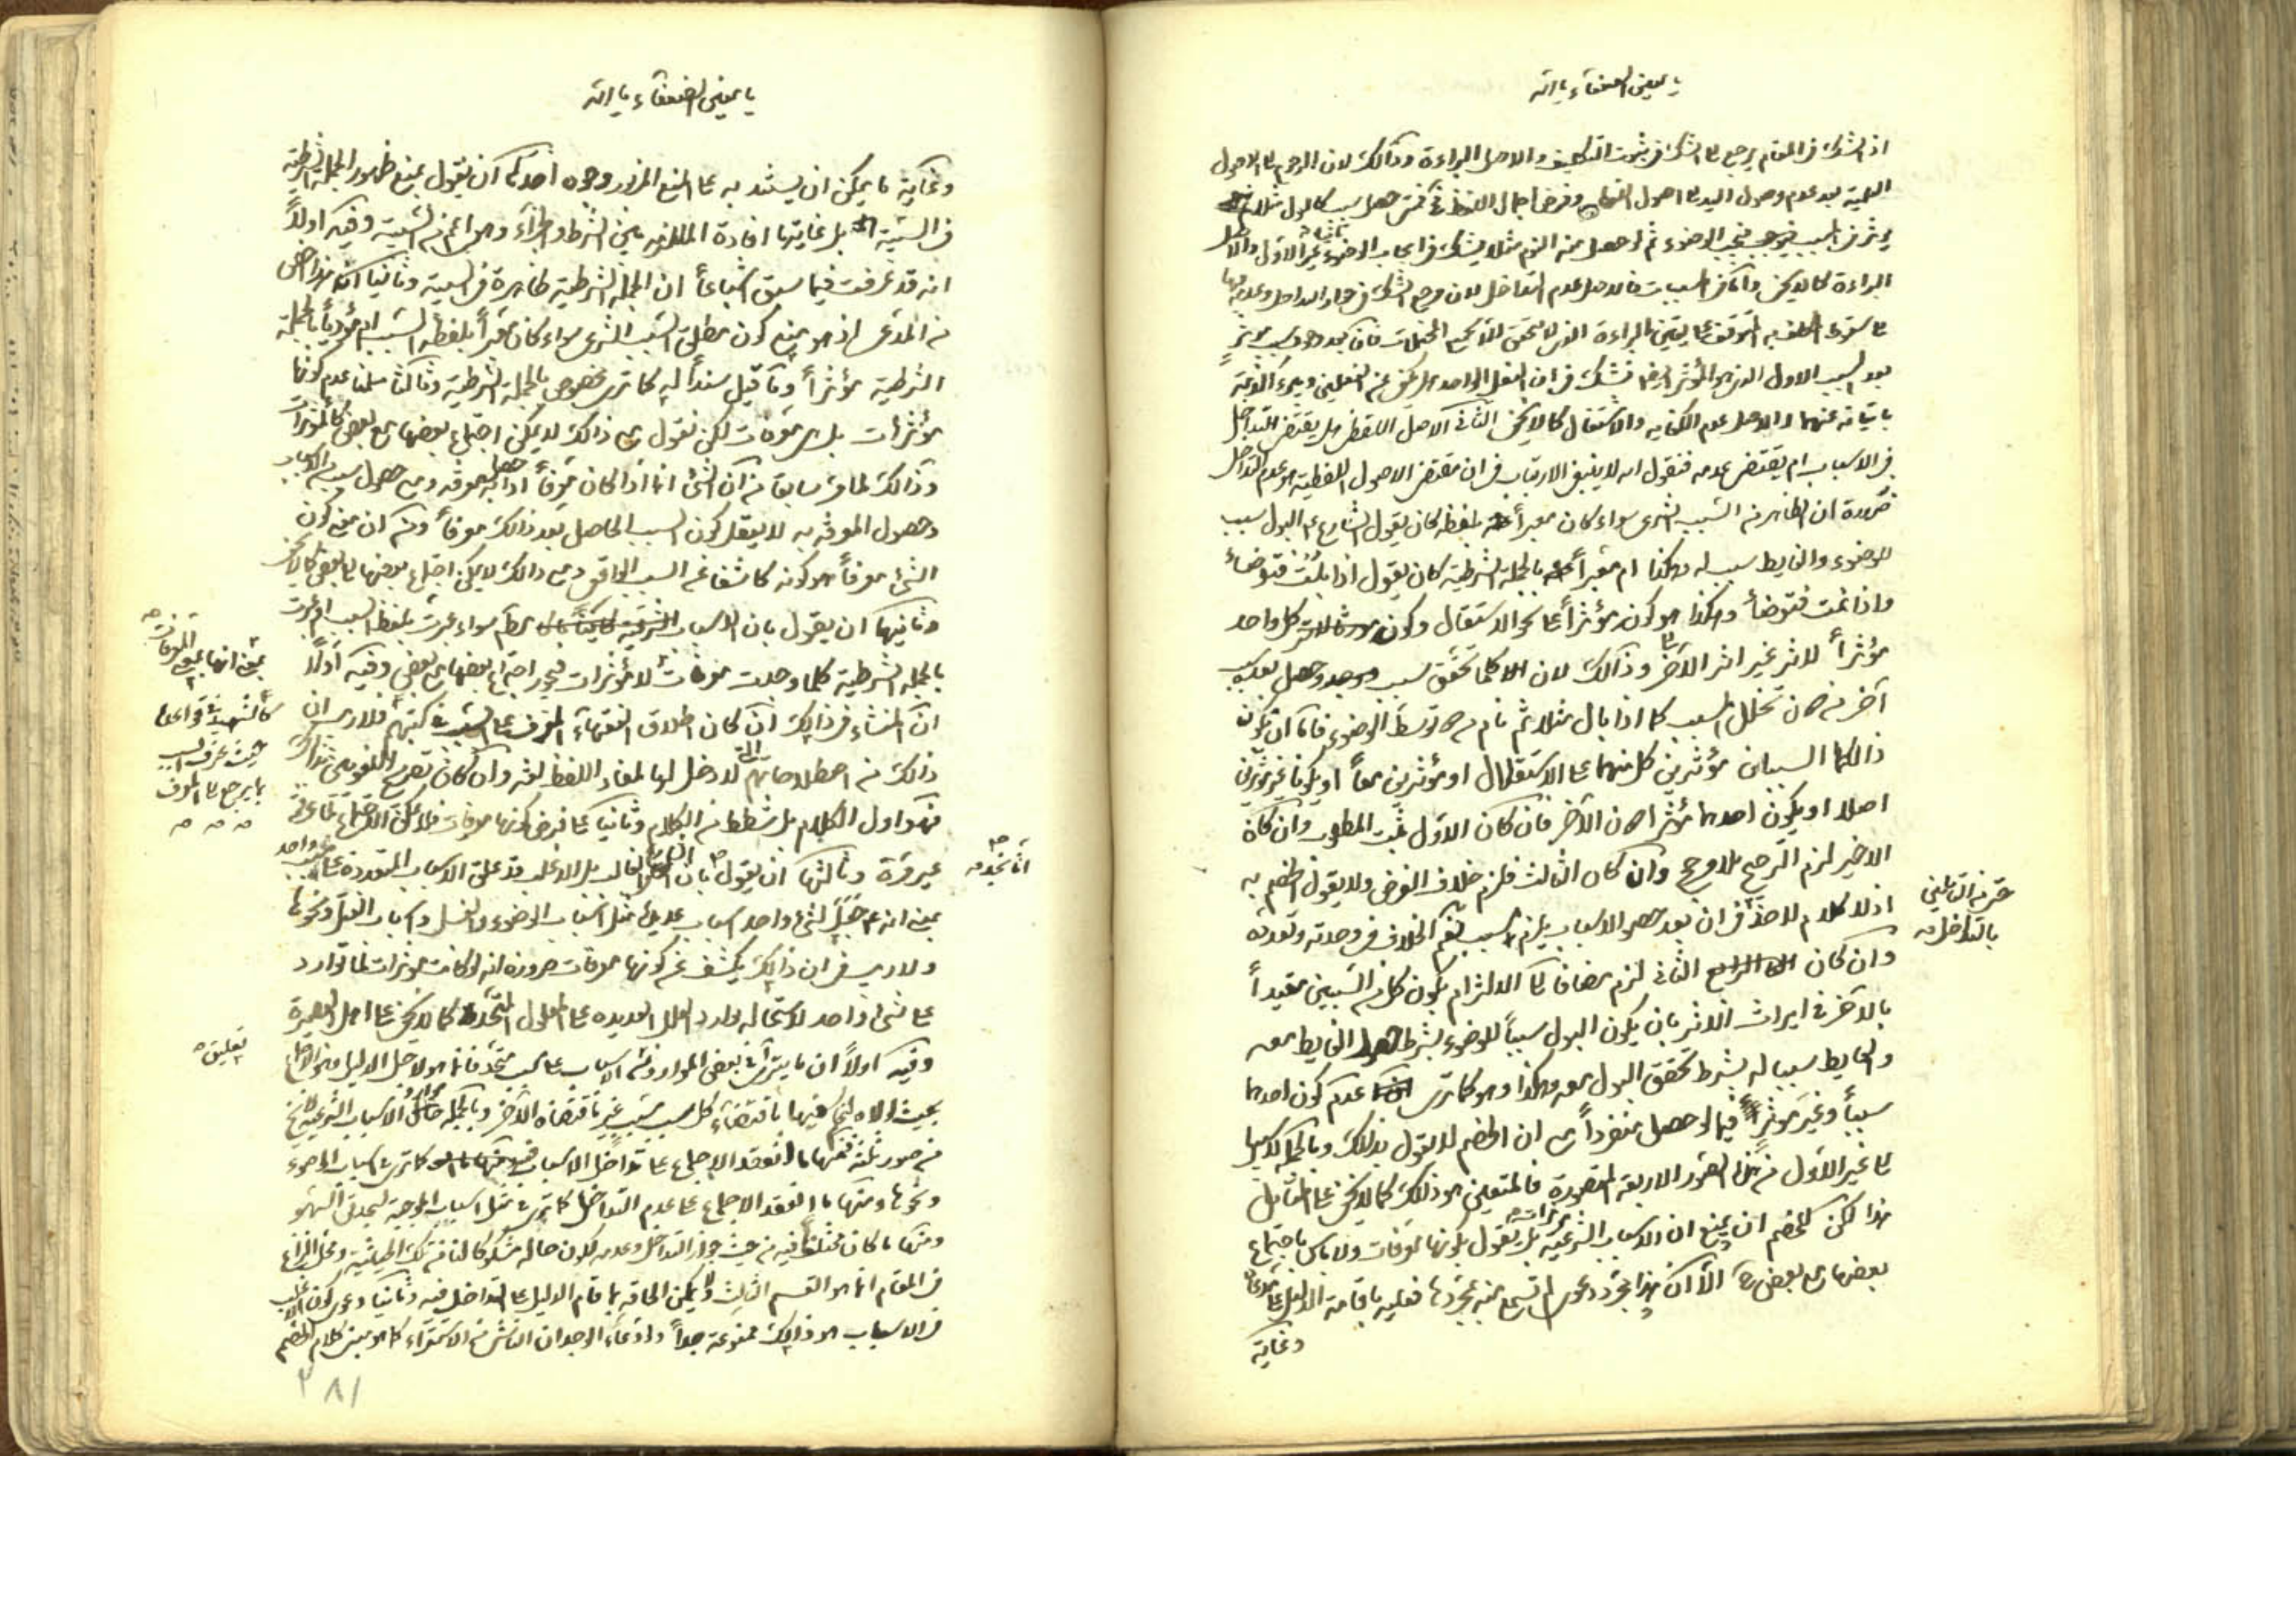 يا معين الضعفاء يا الله
اذ الشك في المقام يرجع الى الشك في ثبوت التكليف والاصل البراءة وذالك لان الرجوع الى الاصول
العملية بعد عدم وصول اليد الى اصول وفرض اجمال اللفظ
يؤثر في المسبب فيجب الوضوء ثم لو حصل منه النوم مثلا يشك في ايجاب الوضوء غير الاول والاصل
البراءة كما لا يخفى واما في المسببات فالاصل عدم التداخل لان مرجع الشك في جواز التداخل وعدمه
بعد السبب الاول الذي هو المؤثر فيشك في ان الفعل الواحد هل يكفي عن الفعلين ويبرء الذمة
باتيانه عنهما والاصل عدم الكفاية والاشتغال كما لا يخفى الثاني الاصل اللفظي هل يقتضي التداخل
في الاسباب ام يقتضي عدمه فنقول انه لا ينبغي الارتياب في ان مقتضى الاصول اللفظية هو عدم التداخل
ضرورة ان الظاهر من السبب الشرعي سواء كان معبرا عنه بلفظه كان يقول الشارع البول سبب
للوضوء والغايط سبب له وهكذا ام معبرا بالجملة الشرطية كان يقول اذا بلت فتوضأ
واذا نمت فتوضأ وهكذا هو كونه مؤثرا على نحو الاستقلال وكون كل واحد
مؤثرا لاثر غير اثر الآخر وذالك لان كلما تحقق سبب ووجد وحصل بعده سبب
آخر من دون تخلل المسبب كما اذا بال مثلا ثم نام من دون توسط الوضوء فاما ان يكون
ذالكما السببان مؤثرين كل منهما على الاستقلال او مؤثرين معا او يكونا غير مؤثرين
اصلا او يكون احدهما مؤثرا دون الآخر فان كان الاول ثبت المطلوب وان كان
الاخير لزم الترجيح بلا مرجح وان كان الثالث فلزم خلاف الفرض ولا يقول الخصم به
اذ لا كلام لاحد في ان بعد حصول الاسباب يلزم مسبب نعم الخلاف في وحدته وتعدده
وان كان الثاني لزم مضافا الى الالتزام بكون كل من السببين مقيدا
بالآخر في ايراث الاثر بان يكون البول سببا للوضوء بشرط الغايط معه
والغايط سببا له بشرط تحقق البول معه وهكذا وهو كما ترى عدم كون احدهما
سببا وغير مؤثر فيما لو حصل منفردا مع ان الخصم لا يقول بذالك وبالجملة لا سبيل
الى غير الاول من هذا الصور الاربعة المتصورة فالمتعين هو ذالك كما لا يخفى على المتامل
هذا لكن للخصم ان يمنع ان الاسباب الشرعية مؤثرات بل يقول بكونها معرفات ولا باس باجتماع
بعضها مع بعض الا ان هذا مجرد دعوى لم تسمع منه بمجردها فعليه باقامة الدليل على مدعاه
وغاية
حتى من القائلين
بالتداخل منه
يا معين الضعفاء يا الله
وغاية ما يمكن ان يستند به على المنع المزبور وجوه احدها ان يقول بمنع ظهور الجملة الشرطية
في السببية بل غايتها افادة الملازمة بين الشرط والجزاء وهو اعم من السببية وفيه اولا
انه قد عرفت فيما سبق اشباعا ان الجملة الشرطية ظاهرة في السببية وثانيا انه هذا اخص
من المدعى اذ هو يمنع كون مطلق السبب الشرعي سواء كان معبرا بلفظ السبب ام مؤديا بالجملة
الشرطية مؤثرا وما قيل سندا له كما ترى مخصوص بالجملة الشرطية وثالثا سلمنا عدم كونها
مؤثرات بل هي معرفات لكن نقول مع ذالك لا يمكن اجتماع بعضها مع بعض كالمؤثرات
وذالك لما مر سابقا من ان الشئ انما اذا كان معرفا
وحصول المعرفة به لا يعقل كون السبب الحاصل بعد ذالك معرفا
الشئ معرفا هو كونه كاشفا عن السبب الواقعي ومع ذالك لا يمكن اجتماع بعضها مع بعض كما لا يخفى
وثانيها ان يقول بان الاسباب الشرعية سواء عبرت بلفظ السبب او عبرت
بالجملة الشرطية كلما وجدت معرفات لا مؤثرات فيجوز اجتماع بعضها مع بعض وفيه اولا
ان المنشاء في ذالك ان كان اطلاق الفقهاء المعرف على السبب في كتبهم فلا ريب ان
ذالك من اصطلاحاتهم لا دخل لها لمفاد اللفظ لغة وان كان تصريح اللغويين بذالك
فهو اول الكلام بل شطط من الكلام وثانيا على فرض كونها معرفات فلا يمكن الاجتماع لما عرفت
غير مرة وثالثها ان يقول بان الغالب بل الاغلب قد علق الاسباب المتعددة على مسبب واحد
بمعنى انه جعل لشئ واحد اسباب عديدة مثل اسباب الوضوء والغسل واسباب القتل ونحوها
ولا ريب في ان ذالك يكشف عن كونها معرفات ضرورة انه لو كانت مؤثرات لما توارد
على شئ واحد لاستحالة توارد العلل العديدة على المعلول المتحد كما لا يخفى على اهل البصيرة
وفيه اولا ان ما يترآى في بعض الموارد من الاسباب على مسبب متحد فانما هو لاجل الدليل من الاجماع
بحيث لولاه لحكم فيها باقتضاء كل سبب مسبب غير ما اقتضاه الآخر وبالجملة موارد الاسباب الشرعية لا تخلو
من صور ثلثة فمنها ما انعقد الاجماع على تداخل الاسباب كما ترى في اسباب الوضوء
ونحوها ومنها ما انعقد الاجماع على عدم التداخل كما ترى في مثل اسباب الموجبة لسجدتي السهو
ومنها ما كان مختلفا فيه من حيث جواز التداخل وعدمه لكون حاله مشكوكا لنا من تلك الحيثية ومحل النزاع
في المقام انما هو القسم الثالث ولا يمكن الحاقه بما قام الدليل على التداخل فيه وثانيا دعوى كون الاغلب
في الاسباب هو ذالك ممنوعة جدا وادعاء الوجدان الناشئ من الاستقراء كما هو مبنى كلام الخصم
بمعنى انها بجميع المعرفات
كالشهيد في قواعده
حيث عرف السبب
بما يرجع الى المعرف
منه منه منه
انا نجد منه
تعليق
٢٨١